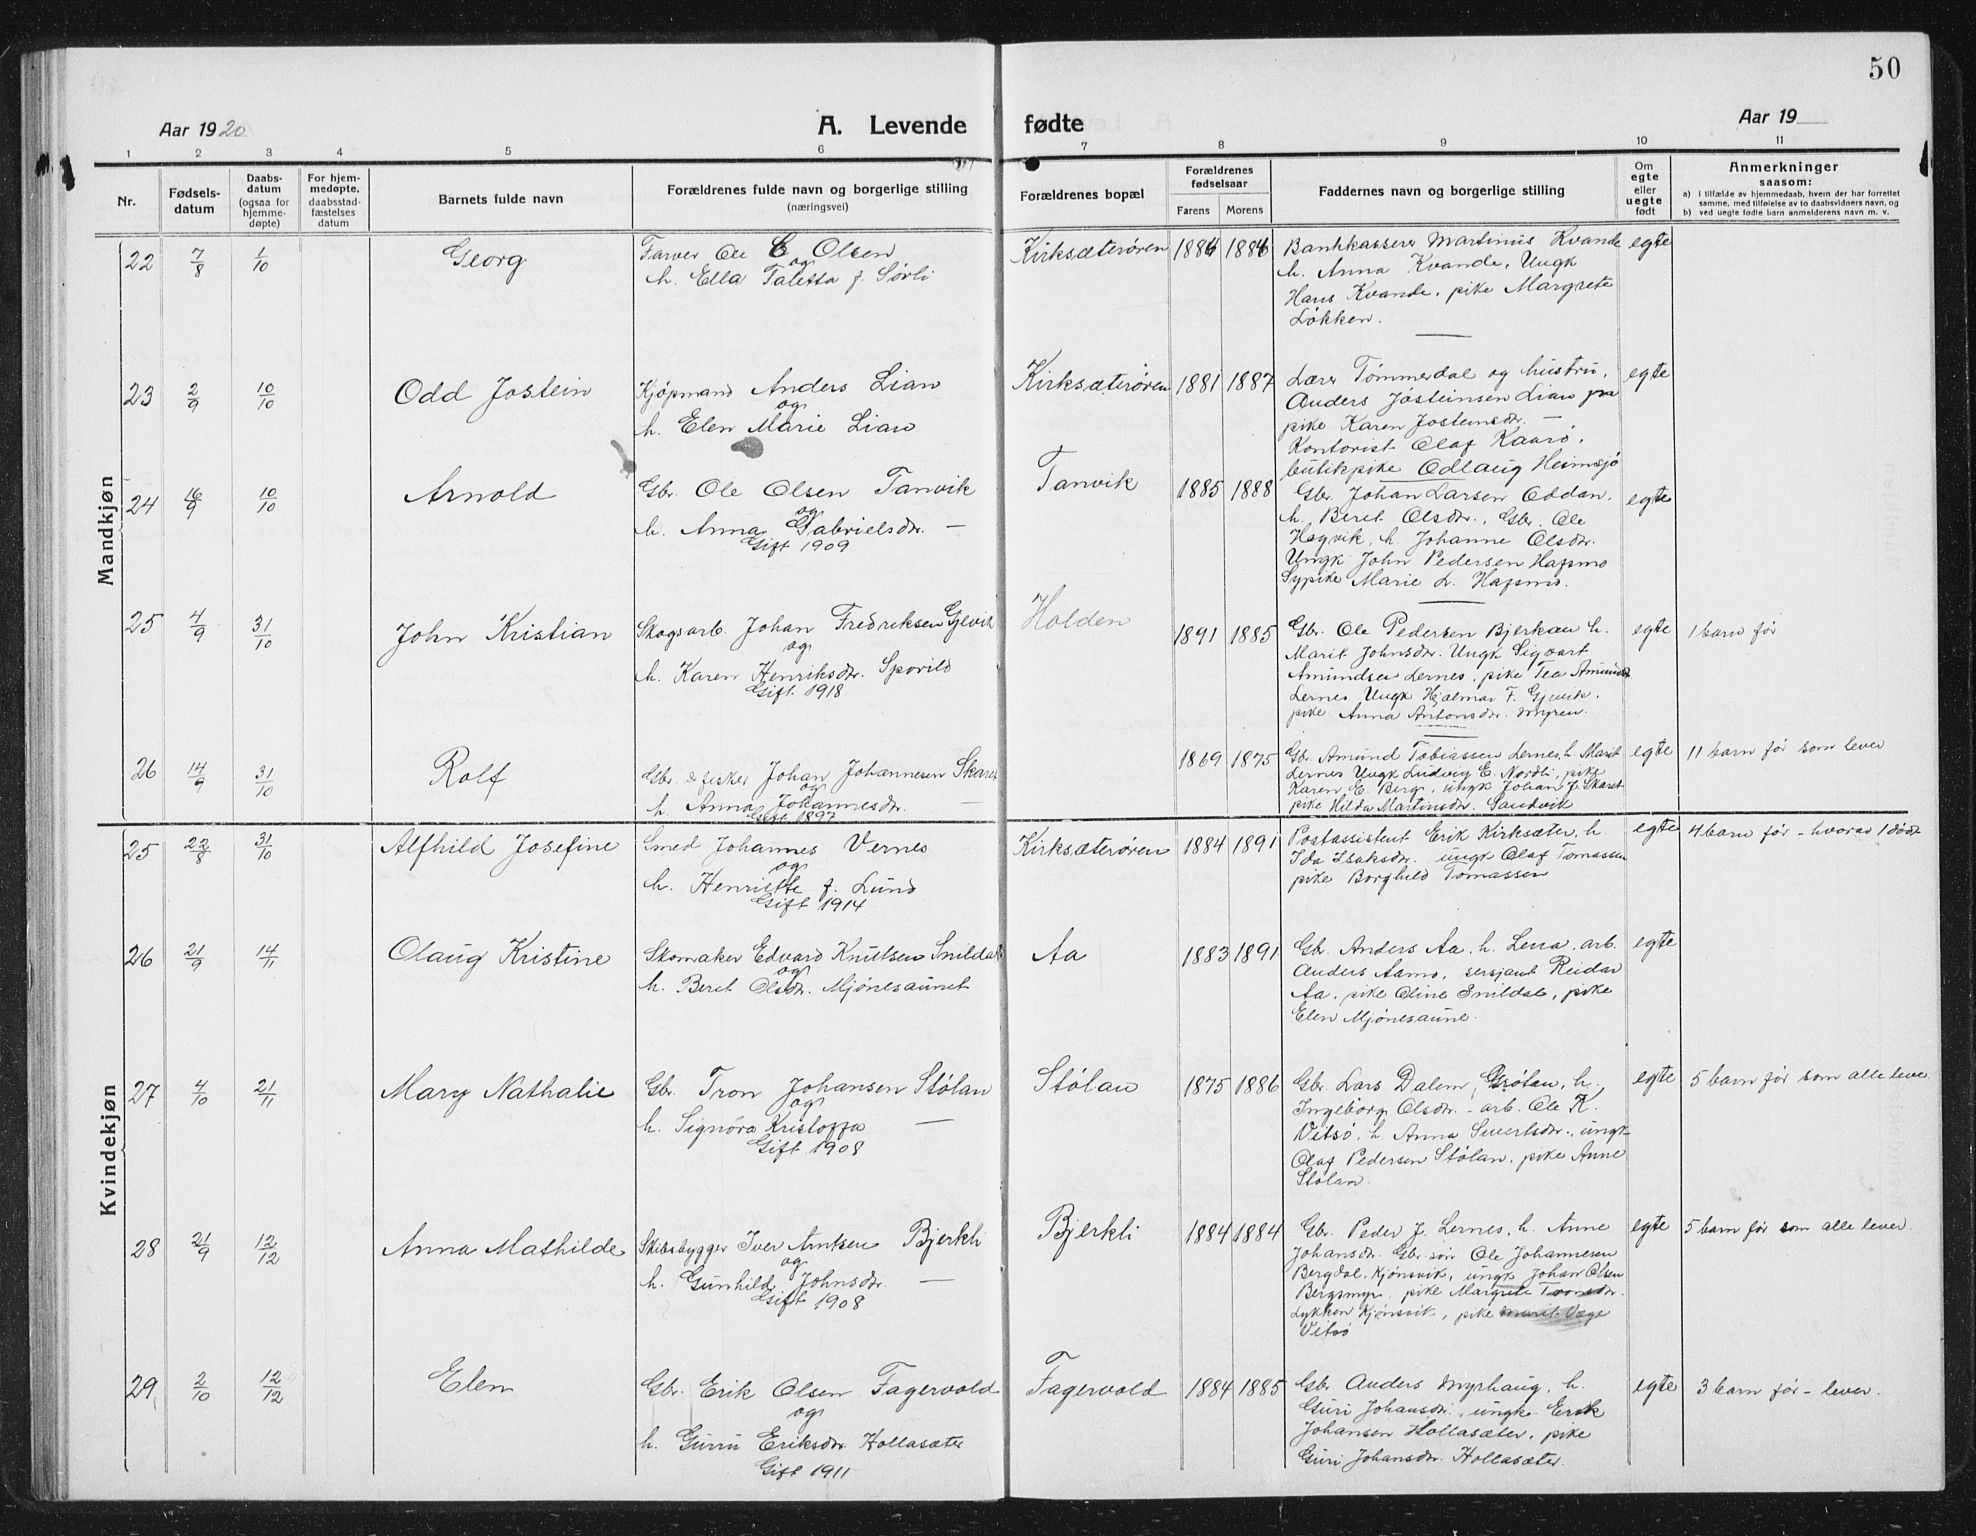 50
Aar 1920
A. Levende fødte
Aar 19
1 2 3 4 5 6 7 8 9 10 11
Nr.
Fødsels-
datum
Daabs-
datum
(ogsaa for
hjemme-
døpte)
For hjem-
medøpte,
daabsstad-
fæstelses
datum
Barnets fulde navn
Forældrenes fulde navn og borgerlige stilling
(næringsvei)
Forældrenes bopæl
Forældrenes
fødselsaar
Farens Morens
Faddernes navn og borgerlige stilling
Om
egte
eller
uegte
født
Anmerkninger
saasom:
a) i tilfælde av hjemmedaab, hvem der har forrettet
samme, med tilføielse av to daabsvidners navn, og
b) ved uegte fødte barn anmelderens navn m. v.
Mandkjøn
22 7/8 1/10 Georg
Farver Ole C Olsen
og
h. Ella Taletta f. Sørli
Kirksæterøren 1886 1886
Bankkasserer Martinus Kvande
h. Anna Kvande, Ungk
Hans Kvande, pike Margrete
Løkken.
egte
23 2/9 10/10 Odd Jostein
Kjøpmand Anders Lian
og
h. Elen Marie Lian
Kirksæterøren 1881 1887
Lærer Tømmerdal og hustru,
Anders Jósteinsen Lian
pike Karen Josteinsdr. —
Kontorist Olaf Kaarø,
butikpike Odlaug Heimsjø
egte
24 16/9 10/10 Arnold
Gbr. Ole Olsen Tanvik
og
h. Anna Gabrielsdr. —
Gift 1909
Tanvik 1885 1888
Gbr. Johan Larsen Oddan,
h. Beret Olsdr., Gbr. Ole
Hagvik, h. Johanne Olsdr.
Ungk John Pedersen Hafsmo
Sypike Marie L. Hafsmo.
egte
25 4/9 31/10 John Kristian
Skogsarb. Johan Fredriksen Gjevik
og
h. Karen Henriksdr. Spovild
Gift 1918
Holden 1891 1885
Gbr. Ole Pedersen Bjerkan h.
Marit Johnsdr. Ungk Sigvart
Amundsen Lernes, pike Tea Amundsdr
Lernes Ungk Hjalmar F. Gjevik.
pike Anna Antonsdr. Myren.
egte 1 barn før
26 14/9 31/10 Rolf
Gbr. & fisker Johan Johannesen Skaret
og
h. Anna Johannesdr. —
Gift 1897
1869 1875
Gbr. Amund Tobiassen Lernes, h. Marit
Lernes Ungk Ludvig E. Nordli, pike
Karen E. Berg, ungk Johan J. Skaret
pike Hilda Martinsdr. Sandvik
egte 11 barn før som lever
Kvindekjøn
25 22/8 31/10 Alfhild Josefine
Smed Johannes Vernes
og
h. Henriette f. Lund
Gift 1914
Kirksæterøren 1884 1891
Postassistent Erik Kirksæter, h.
Ida Isaksdr. ungk Olaf Tomassen
pike Borghild Tomassen
egte 4 barn før - hvorav 1 død
26 21/9 14/11 Olaug Kristine
Skomaker Edvard Knutsen Snildal
og
h. Beret Olsdr. Mjónesaunet
Aa 1883 1891
Gbr. Anders Aa, h. Lena, arb.
Anders Aamo, sersjant Reidar
Aa, pike Oline Snildal, pike
Elen Mjónesaune.
egte
27 4/10 21/11 Mary Nathalie
Gbr. Tron Johansen Stólan
og
h. Signóra Kristoffa —
Gift 1908
Stólan 1875 1886
Gbr. Lars Dalem, Grótan, h.
Ingeborg Olsdr. - arb. Ole K.
Vitsó, h. Anna Sivertsdr., ungk
Olaf Pedersen Stólan, pike Anne
Stólan.
egte 5 barn før som alle lever
28 21/9 12/12 Anna Mathilde
Skibsbygger Iver Arntsen Bjerkli
og
h. Gunhild Johnsdr. —
Gift 1908
Bjerkli 1884 1884
Gbr. Peder J. Lernes, h. Anne
Johansdr. Gbr. søn Ole Johannesen
Bergdal, Kjónsvik, ungk Johan Olsen
Bergsmyr, pike Margrete Tronsdr.
Lykken Kjónsvik, pike Marit Vage
Vitsó
egte 5 barn før som alle lever.
29 2/10 12/12 Elen
Gbr. Erik Olsen Fagervold
og
h. Gurru Eriksdr. Hollasæter
Gift 1911
Fagervold 1884 1885
Gbr. Anders Myrhaug, h.
Guri Johansdr., ungk Erik
Johansen Hollasæter, pike
Guri Johansdr. Hollasæter.
egte 3 barn før - lever.